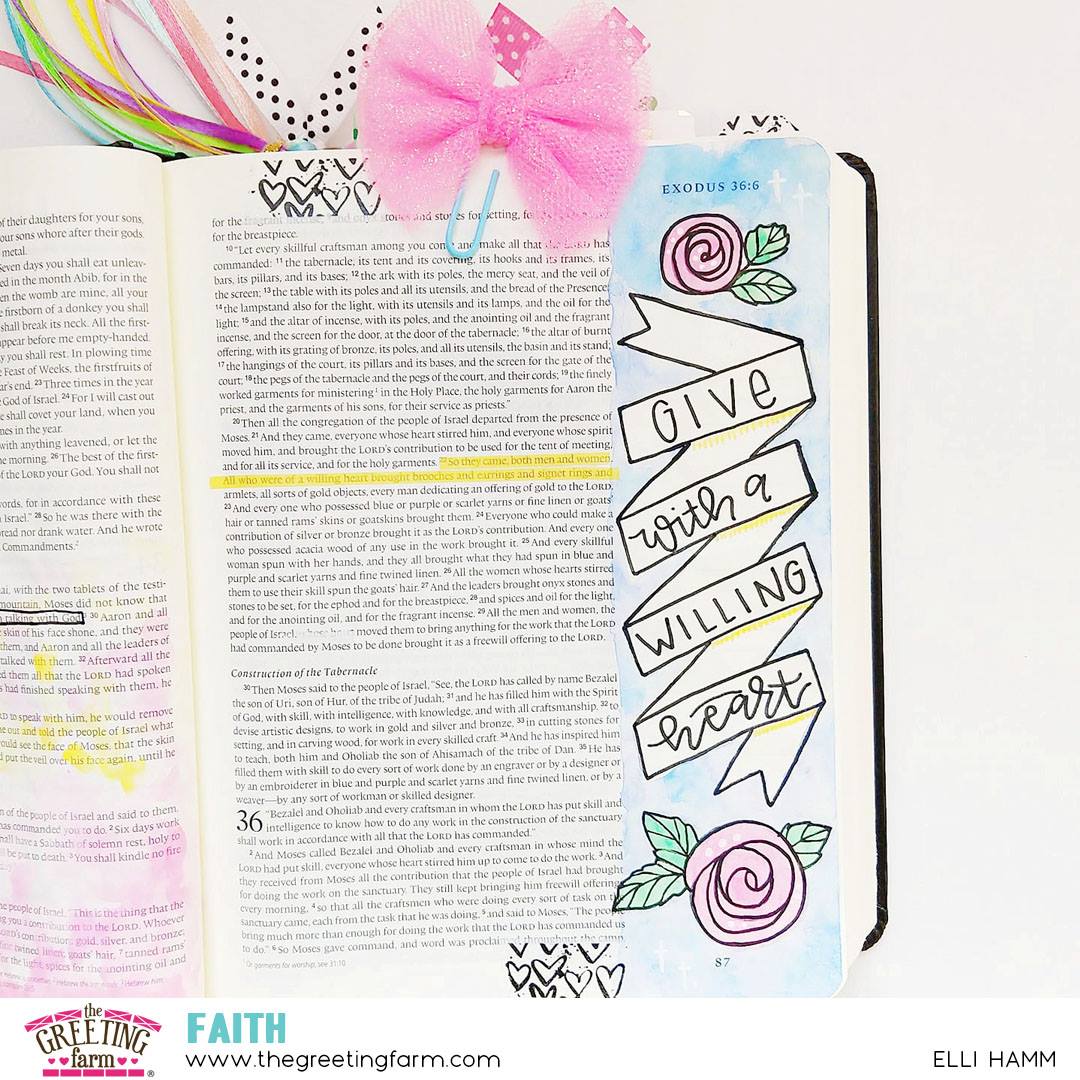 of their daughters for your sons,
our sons whore after their gods
metal.
Seven days you shall eat unleav-
ed in the month Abib, for in the
en the womb are mine, all your
e firstborn of a donkey you shall
shall break its neck. All the first-
appear before me empty-handed.
y you shall rest. In plowing time
e Feast of Weeks, the firstfruits of
ar's end. 23 Three times in the year
God of Israel. 24 For I will cast out
e shall covet your land, when you
mes in the year.
with anything leavened, or let the
he morning. 26 The best of the first-
of the LORD your God. You shall not
words, for in accordance with these
Israel." 28 So he was there with the
read nor drank water. And he wrote
Commandments.2
ai, with the two tablets of the testi-
mountain, Moses did not know that
talking with God. 30 Aaron and all
skin of his face shone, and they were
them, and Aaron and all the leaders of
talked with them. 32 Afterward all the
ed them all that the LORD had spoken
s had finished speaking with them, he
RD to speak with him, he would remove
e out and told the people of Israel what
ould see the face of Moses, that the skin
d put the veil over his face again, until he
n of the people of Israel and said to them,
has commanded you to do. 2 Six days work
hall have a Sabbath of solemn rest, holy to
ll be put to death. 3 You shall kindle no fire
he people of Israel, "This is the thing that the
g you a contribution to the LORD. Whoever
ORD's contribution: gold, silver, and bronze;
fine twined linen; goats' hair, 7 tanned rams'
for the light, spices for the anointing oil and
for the fragrant incense, and onyx stones and stones for setting, for
for the breastpiece.
10 "Let every skillful craftsman among you come and make all that the LORD has
commanded: 11 the tabernacle, its tent and its covering, its hooks and its frames, its
bars, its pillars, and its bases; 12 the ark with its poles, the mercy seat, and the veil of
the screen; 13 the table with its poles and all its utensils, and the bread of the Presence;
14 the lampstand also for the light, with its utensils and its lamps, and the oil for the
light; 15 and the altar of incense, with its poles, and the anointing oil and the fragrant
incense, and the screen for the door, at the door of the tabernacle; 16 the altar of burnt
offering, with its grating of bronze, its poles, and all its utensils, the basin and its stand;
17 the hangings of the court, its pillars and its bases, and the screen for the gate of the
court; 18 the pegs of the tabernacle and the pegs of the court, and their cords; 19 the finely
worked garments for ministering1 in the Holy Place, the holy garments for Aaron the
priest, and the garments of his sons, for their service as priests."
20 Then all the congregation of the people of Israel departed from the presence of
Moses. 21 And they came, everyone whose heart stirred him, and everyone whose spirit
moved him, and brought the LORD's contribution to be used for the tent of meeting,
and for all its service, and for the holy garments. 22 So they came, both men and women.
All who were of a willing heart brought brooches and earrings and signet rings and
armlets, all sorts of gold objects, every man dedicating an offering of gold to the LORD.
23 And every one who possessed blue or purple or scarlet yarns or fine linen or goats'
hair or tanned rams' skins or goatskins brought them. 24 Everyone who could make a
contribution of silver or bronze brought it as the LORD's contribution. And every one
who possessed acacia wood of any use in the work brought it. 25 And every skillful
woman spun with her hands, and they all brought what they had spun in blue and
purple and scarlet yarns and fine twined linen. 26 All the women whose hearts stirred
them to use their skill spun the goats' hair. 27 And the leaders brought onyx stones and
stones to be set, for the ephod and for the breastpiece, 28 and spices and oil for the light,
and for the anointing oil, and for the fragrant incense. 29 All the men and women, the
people of Israel, moved them to bring anything for the work that the LORD
had commanded by Moses to be done brought it as a freewill offering to the LORD.
Construction of the Tabernacle
30 Then Moses said to the people of Israel, "See, the LORD has called by name Bezalel
the son of Uri, son of Hur, of the tribe of Judah; 31 and he has filled him with the Spirit
of God, with skill, with intelligence, with knowledge, and with all craftsmanship, 32 to
devise artistic designs, to work in gold and silver and bronze, 33 in cutting stones for
setting, and in carving wood, for work in every skilled craft. 34 And he has inspired him
to teach, both him and Oholiab the son of Ahisamach of the tribe of Dan. 35 He has
filled them with skill to do every sort of work done by an engraver or by a designer or
by an embroiderer in blue and purple and scarlet yarns and fine twined linen, or by a
weaver—by any sort of workman or skilled designer.
36 "Bezalel and Oholiab and every craftsman in whom the LORD has put skill and
intelligence to know how to do any work in the construction of the sanctuary
shall work in accordance with all that the LORD has commanded."
2 And Moses called Bezalel and Oholiab and every craftsman in whose mind the
LORD had put skill, everyone whose heart stirred him up to come to do the work. 3 And
they received from Moses all the contribution that the people of Israel had brought
for doing the work on the sanctuary. They still kept bringing him freewill offerings
every morning, 4 so that all the craftsmen who were doing every sort of task on the
sanctuary came, each from the task that he was doing, 5 and said to Moses, "The people
bring much more than enough for doing the work that the LORD has commanded us
to do." 6 So Moses gave command, and word was proclaimed throughout the camp,
1 Or garments for worship; see 31:10
EXODUS 36:6
GIVE
with a
WILLING
heart
87
the
GREETING
farm
®
FAITH
www.thegreetingfarm.com
ELLI HAMM